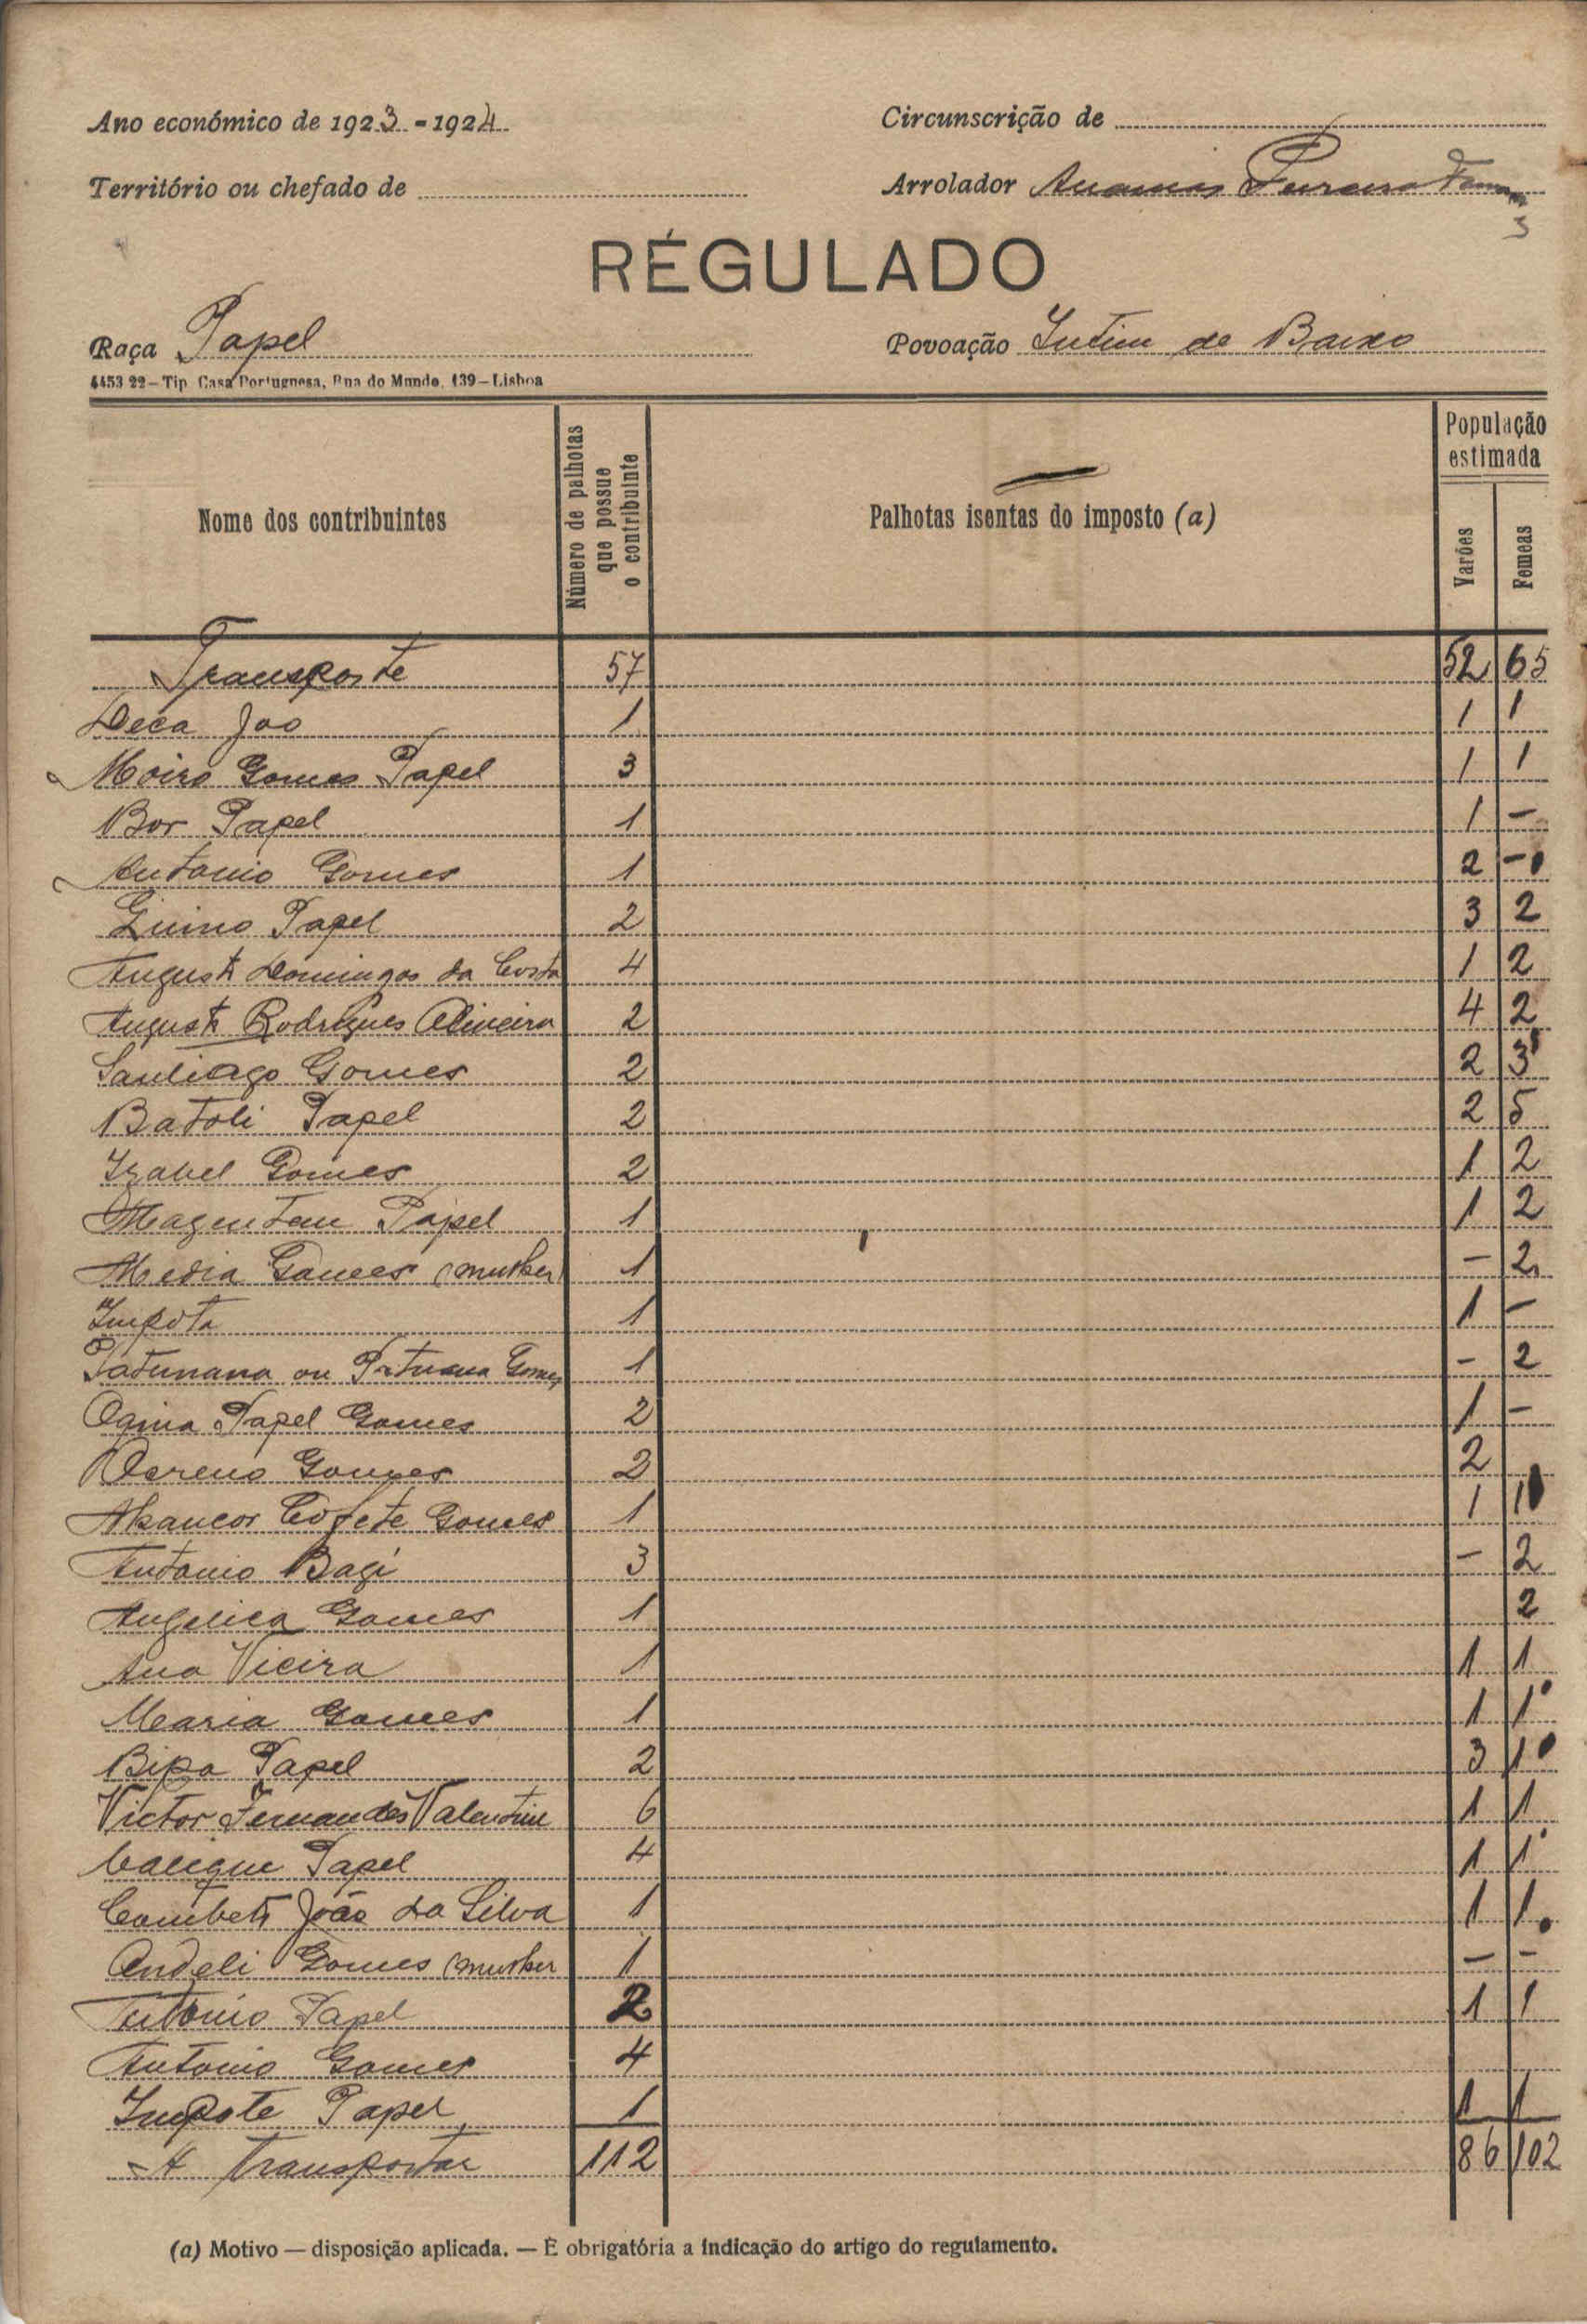 Ano económico de 1923-1924 Circunscrição de
Território ou chefado de Arrolador
3
RÉGULADO
Raça Papel Povoação Intim de Baixo
4453 22—Tip. Casa Portuguesa, Rua do Mundo, 139—Lisboa
Nome dos contribuintes Número de palhotas que possue o contribuinte Palhotas isentas do imposto (a) População estimada Varões Femeas
Transporte 57 52 65
Deca Joo 1 1 1
Moiro Gomes Papel 3 1 1
Bor Papel 1 1 -
Antonio Gomes 1 2 -
Papel 2 3 2
Augusto Domingos da Costa 4 1 2
Augusto Rodrigues Oliveira 2 4 2
Santiago Gomes 2 2 3
Batoli Papel 2 2 5
Izabel Gomes 2 1 2
Papel 1 1 2
Gomes (mulher) 1 - 2
Impota 1 1 -
ou Gomes 1 - 2
Papel Gomes 2 1 -
Gomes 2 2
Gomes 1 1 1
Antonio 3 - 2
Angelica Gomes 1 2
Ana Vieira 1 1 1
Maria Gomes 1 1 1
Bipa Papel 2 3 1
Victor Fernandes Valentim 6 1 1
Papel 4 1 1
João da Silva 1 1 1
Gomes (mulher 1 - -
Antonio Papel 2 1 1
Antonio Gomes 4
Impote Papel 1 1 1
A Transportar 112 86 102
(a) Motivo — disposição aplicada. — É obrigatória a indicação do artigo do regulamento.